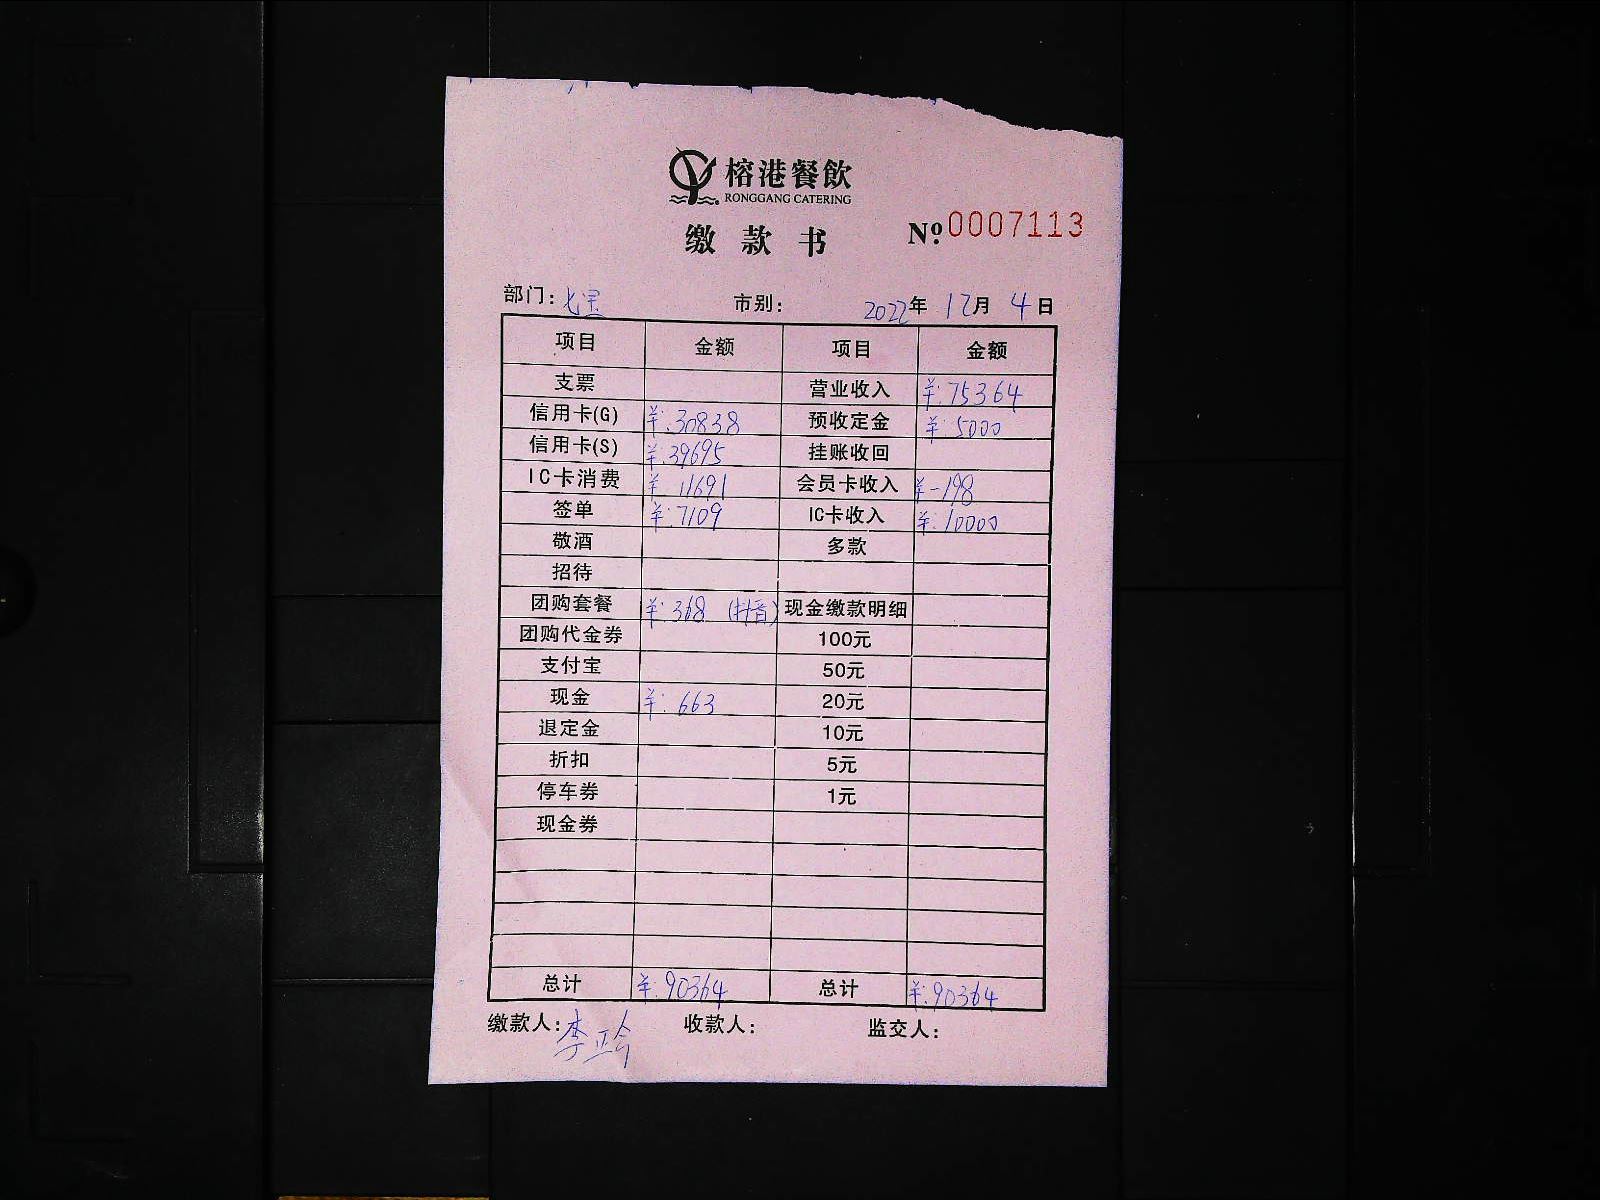 榕港餐飲
RONGGANG CATERING
缴款书 №0007113
部门：七宝 市别： 2022年 12月 4日
项目 金额 项目 金额
支票 营业收入 ¥:75364
信用卡(G) ¥:30838 预收定金 ¥:5000
信用卡(S) ¥:39695 挂账收回
IC卡消费 ¥ 11691 会员卡收入 ¥-198
签单 ¥:7109 IC卡收入 ¥:10000
敬酒 多款
招待
团购套餐 ¥:368 (抖音) 现金缴款明细
团购代金券 100元
支付宝 50元
现金 ¥: 663 20元
退定金 10元
折扣 5元
停车券 1元
现金券
总计 ¥:90364 总计 ¥:90364
缴款人： 收款人： 监交人：